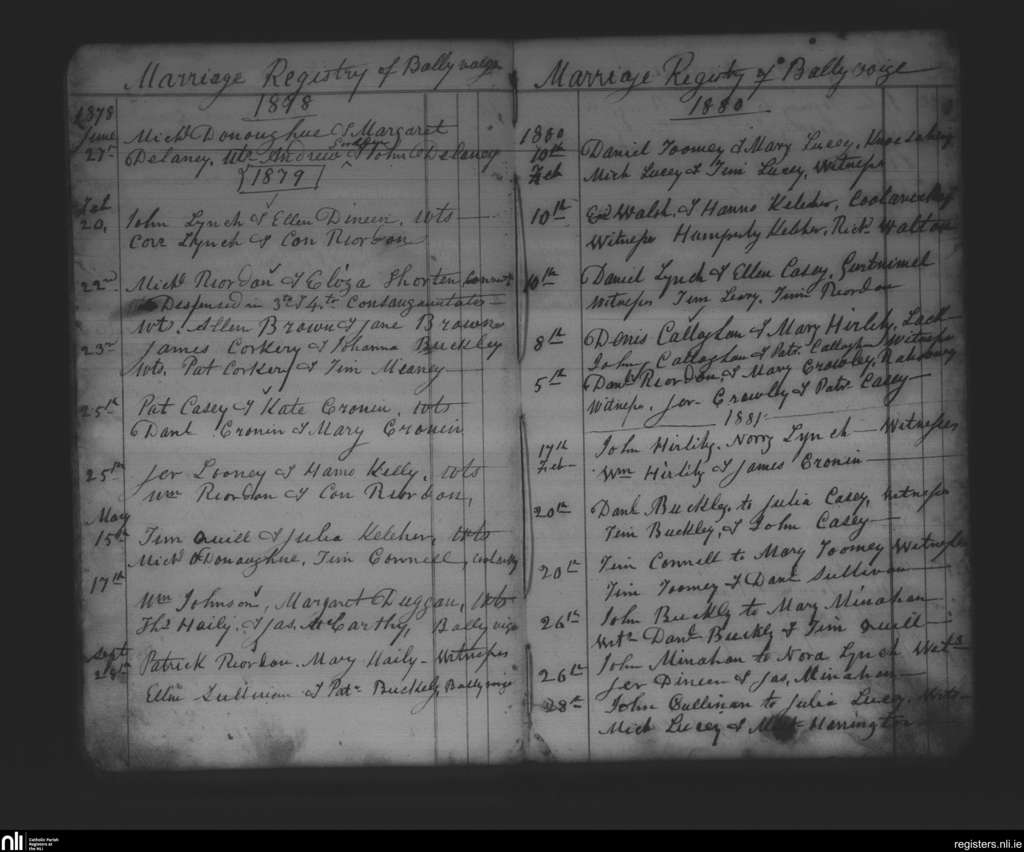 Marriage Registry of Bally
1878
1878
June
Mich. Donoughue & Margaret
27th
Delaney. Wts Andrew & John Delaney
1879
Feb
20,
John Lynch & Ellen Dineen. wts
Corr Lynch & Con Riordan
22nd
Mich. Riordan & Shorten
Dispensed in 3rd & 4th
Wts. Allen Brown & Jane Browne
23rd
James Corkery & Johanna Buckley
Wts. Pat Corkery & Tim Meaney
25th
Pat Casey & Kate Cronin. wts
Danl. Cronin & Mary Cronin
25th
Jer Looney & Hanno Kelly. wts
Wm Riordan & Con Riordan,
May
15th
Tim Quill & Julia Keleher, wts
Mich O'Donoughue, Tim Connell,
17th
Wm Johnson, Margaret Duggan, Wts
Ths Haily. & Jas. McCarthy,
Sept
28th
Patrick Riordan. Mary Haily - Witneſses
Ellen Sullivan & Patk Buckely
Marriage Registry of Bally
1880
1880
10th
Daniel Toomey & Mary Lucey,
Feb
Mich Lucey & Tim Lucey, Witneſs
10th
Walsh. & Hanno Keleher,
Witneſs Keleher, Rich. Walton
10th
Daniel Lynch & Ellen Casey,
Witneſs Tim Leary. Tim Riordan
8th
Denis Callaghan & Mary Hirlihy,
John Callaghan & Patk Callaghan Witneſs
5th
Danl Riordan & Mary Crowley,
Witneſs. Jer Crowley & Patk Casey
1881
17th
John Hirlihy. Nory Lynch - Witneſses
Feb
Wm Hirlihy & James Cronin
20th
Danl Buckley to Julia Casey, Witneſs
Tim Buckley, & John Casey
20th
Tim Connell to Mary Toomey Witneſs
Tim Toomey & Danl Sullivan
26th
John Buckly to Mary Minahan
Witn Danl Buckly & Tim Quill
26th
John Minahan to Nora Lynch
Jer Dineen & Jas. Minahan
28th
John Cullinan to Julia Lucey.
Mich Lucey & Harrington
nli
Catholic Parish
Registers at
the NLI
registers.nli.ie